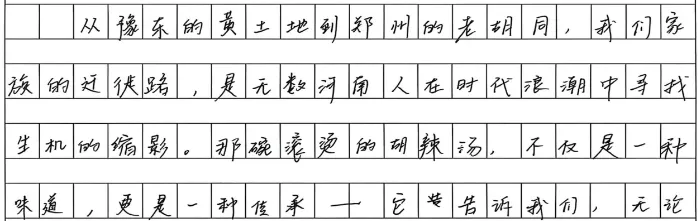 从豫东的黄土地到郑州的老胡同，我们家
族的迁徙路，是无数河南人在时代浪潮中寻找
生机的缩影。那碗滚烫的胡辣汤，不仅是一种
味道，更是一种传承——它告诉我们，无论